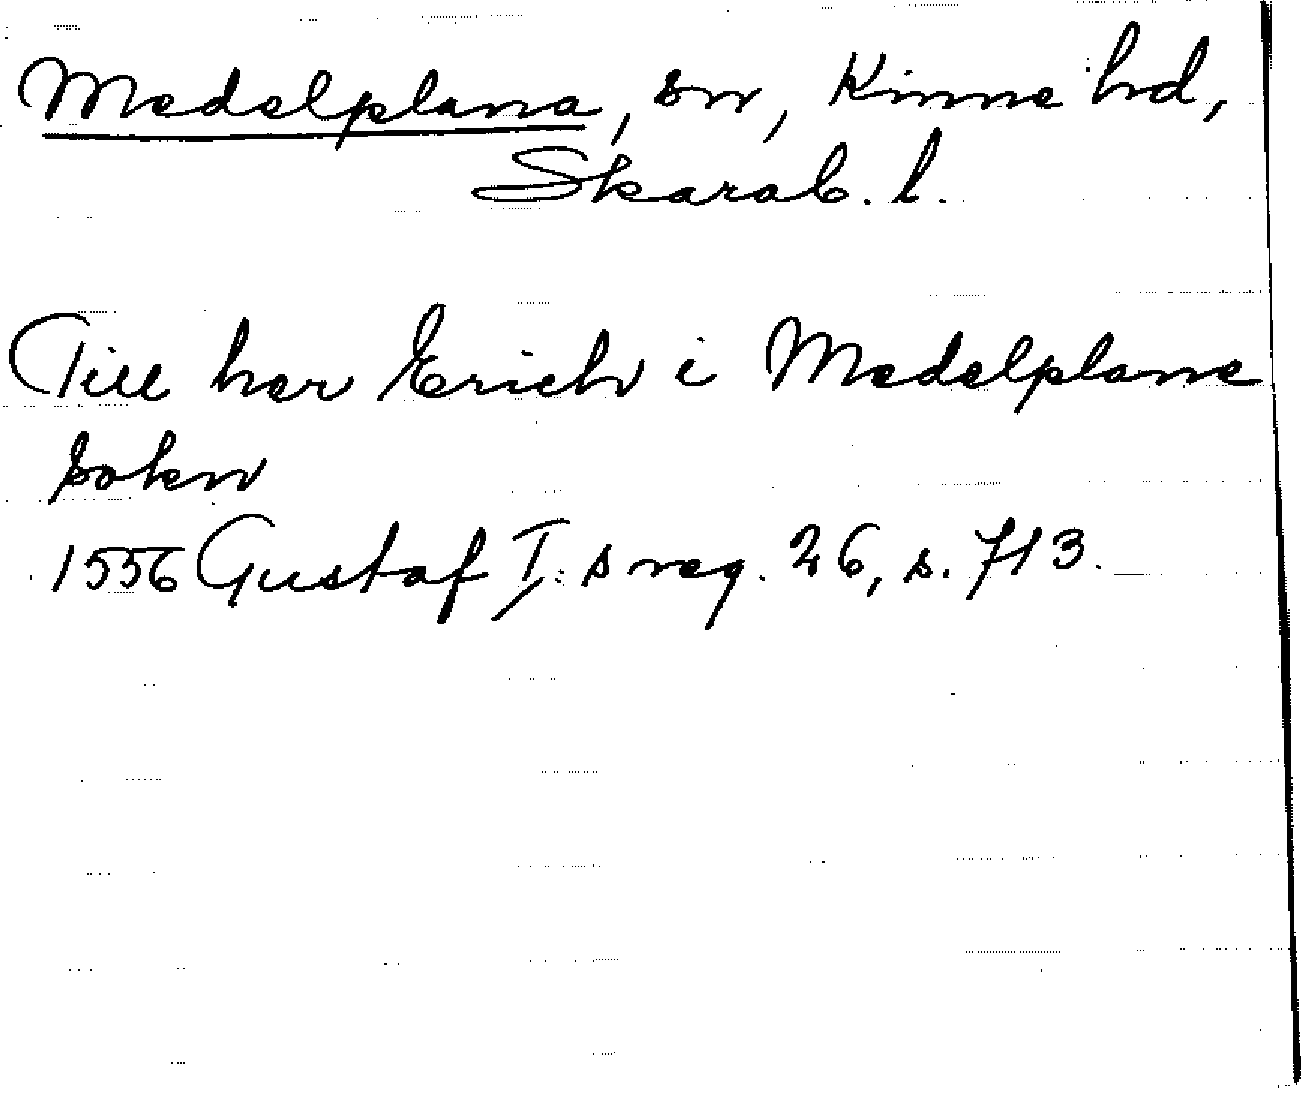 Medelplana, sn, Kinne hd,
Skarab. l.
Till her Erich i Medelplane
sokn
1556 Gustaf I:s reg. 26, s. 713.